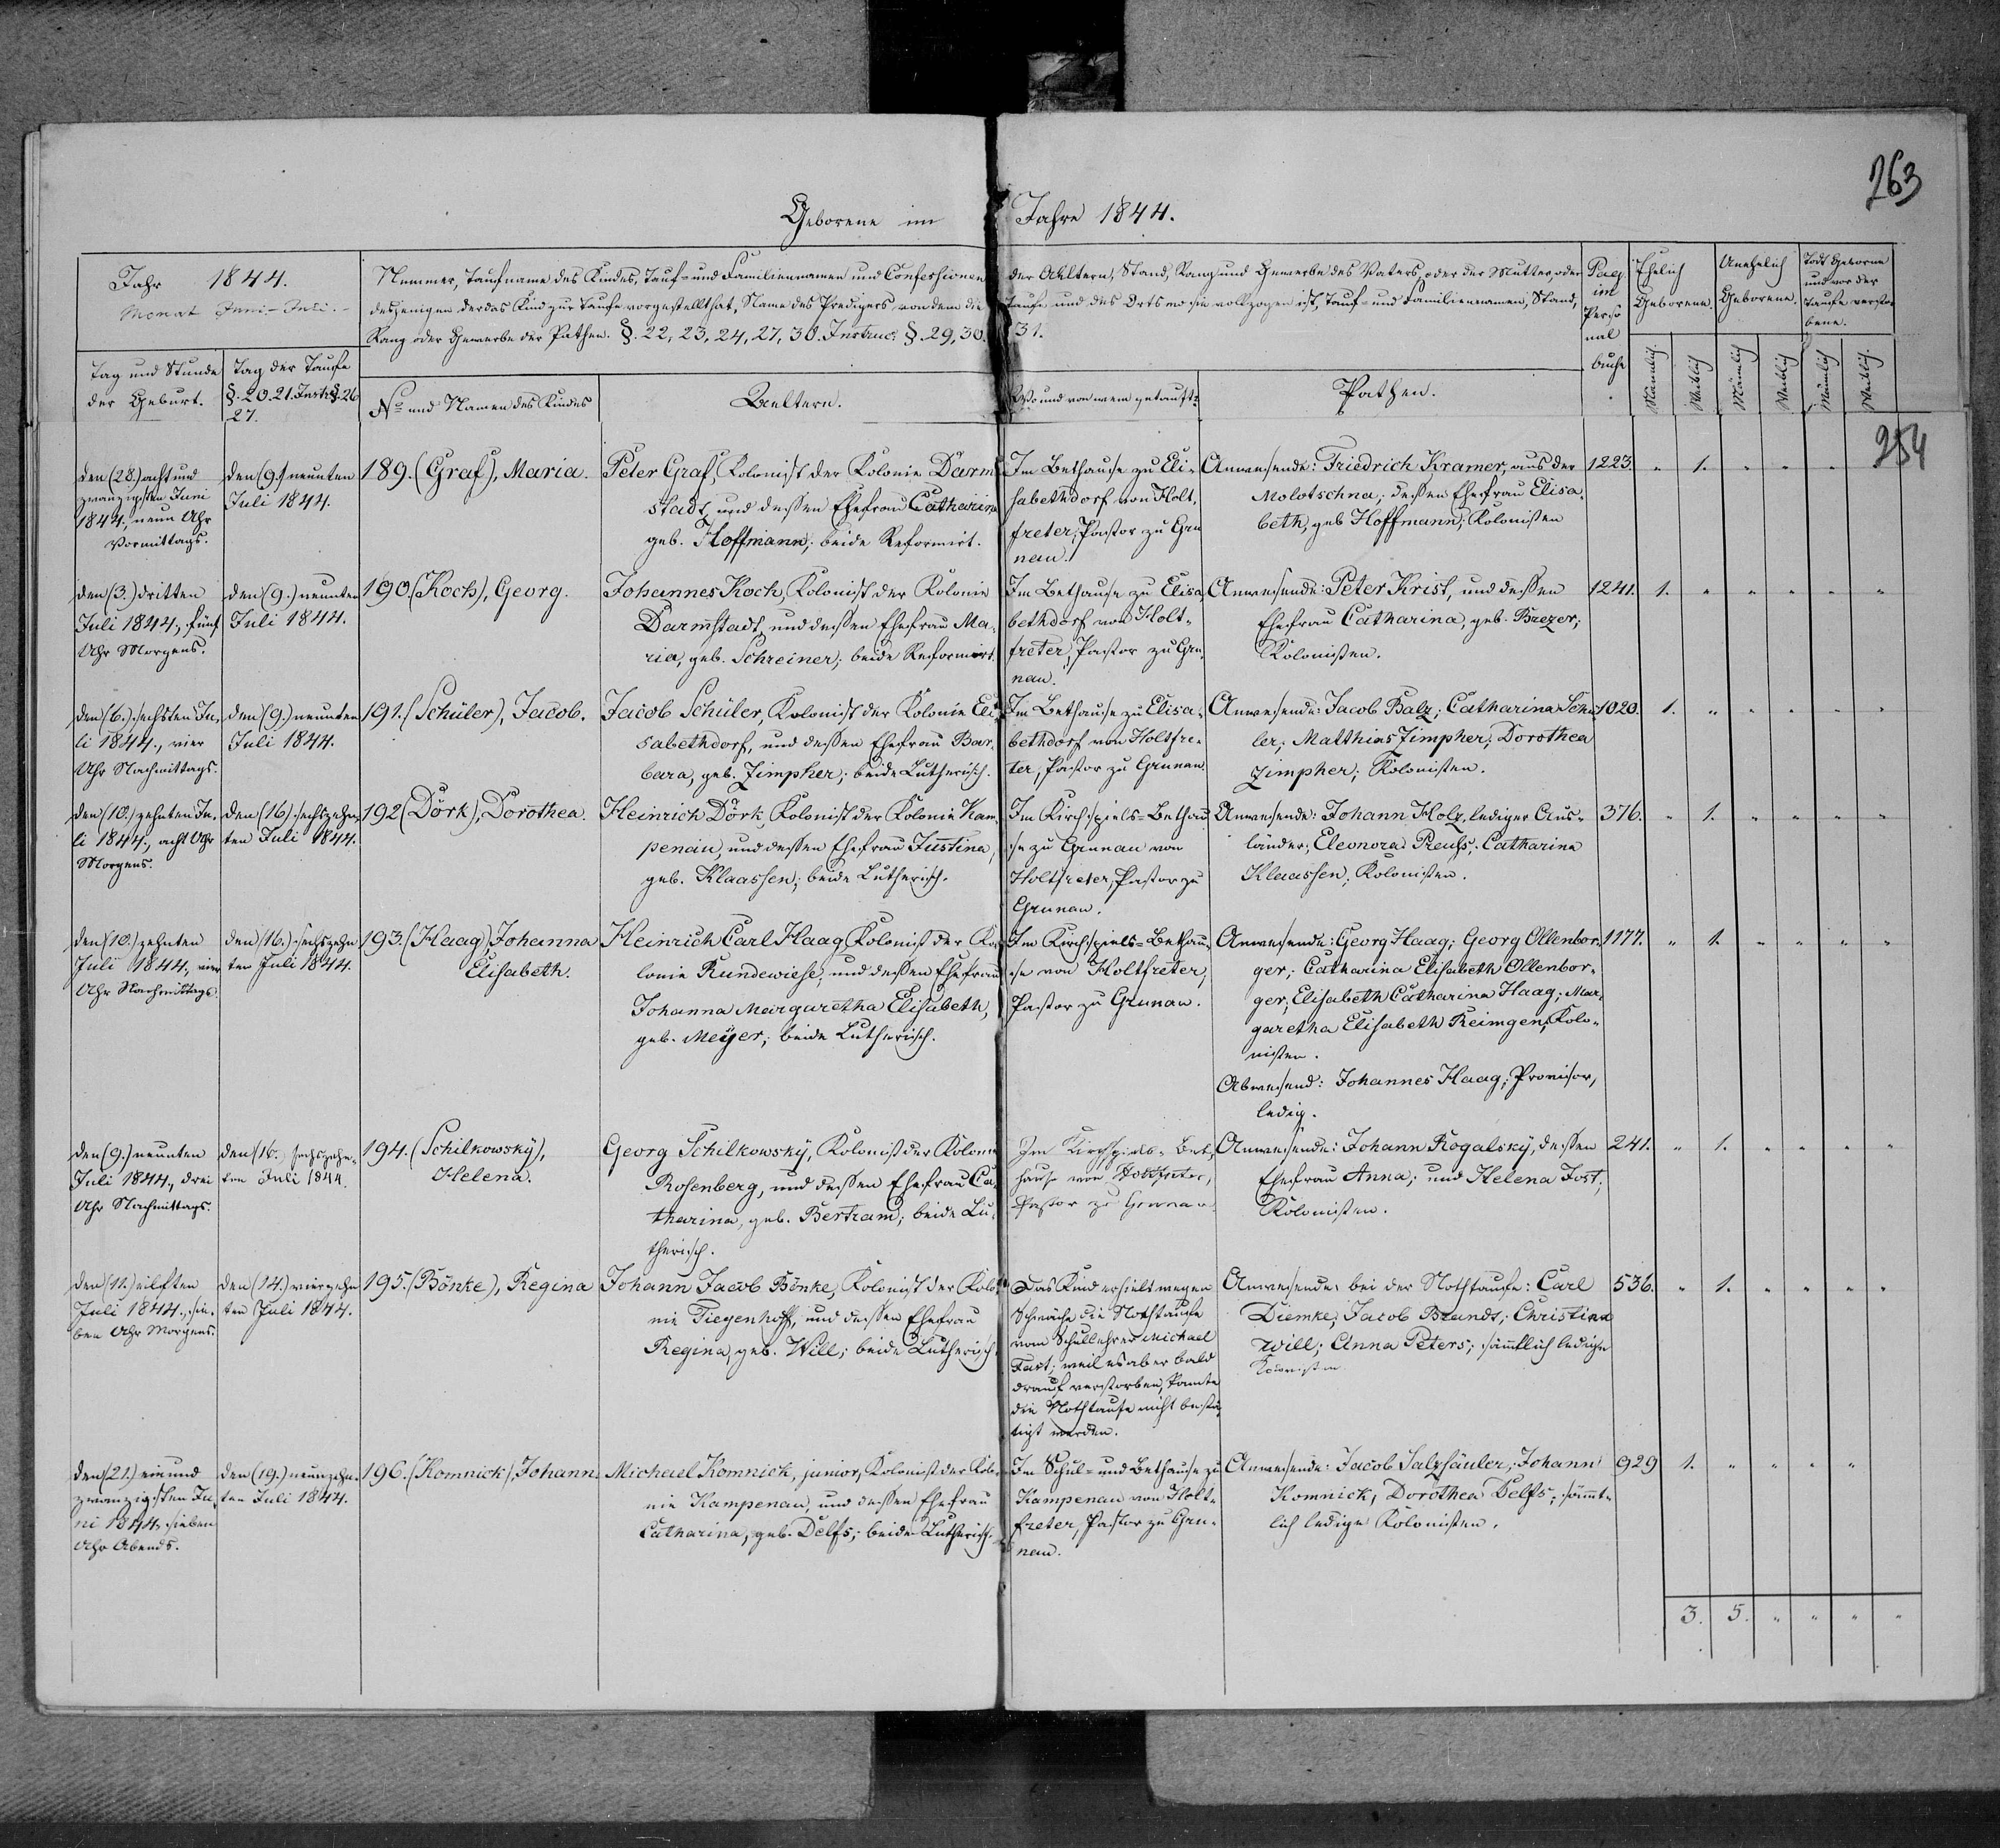 263
Geborene im Jahre 1844.
Jahr 1844.
Monat Juni-Juli.
Nummer, Taufname des Kindes, Tauf- und Familiennamen und Confessionen der Aeltern, Stand, Rang und Gewerbe des Vaters, oder der Mutter, oder
desjenigen der das Kind zur Taufe vorgestellt hat, Name des Predigers von dem die Taufe und des Orts wo sie vollzogen ist, Tauf- und Familiennamen, Stand,
Rang oder Gewerbe der Pathen. §. 22, 23, 24, 27, 30. Instruc: §. 29, 30. 31.
Pag.
im
Perso
nal
buche
Ehelich
Geborene.
Unehelich
Geborene.
Todt Geborne
und vor der
Taufe verstor
bene.
Tag und Stunde
der Geburt.
Tag der Taufe
§. 20. 21. Instr. §. 26
27.
No und Namen des Kindes
Aeltern.
Wo und von wem getauft?
Pathen.
Männlich.
Weiblich
Männlich
Weiblich
Männlich
Weiblich.
254
den (28.) acht und
zwanzigsten Juni
1844., neun Uhr
Vormittags.
den (9.) neunten
Juli 1844.
189. (Graf), Maria.
Peter Graf, Kolonist der Kolonie Darm
stadt, und dessen Ehefrau Catharina
geb. Hoffmann; beide Reformirt.
Im Bethause zu Eli-
sabethdorf von Holt,
freter, Pastor zu Gru
nau.
Anwesende: Friedrich Kramer, aus der
Molotschna; dessen Ehefrau Elisa,
beth, geb Hoffmann; Kolonisten
1223. " 1. " " "
den (3.) dritten
Juli 1844., fünf
Uhr Morgens.
den (9.) neunten
Juli 1844.
190. (Koch), Georg.
Johannes Koch, Kolonist der Kolonie
Darmstadt, und dessen Ehefrau Ma-
ria, geb. Schreiner; beide Reformirt.
Im Bethause zu Elisa
bethdorf von Holt-
freter, Pastor zu Gru,
nau.
Anwesende: Peter Krist, und dessen
Ehefrau Catharina, geb. Brezer;
Kolonisten.
1241. 1. " " " " "
den (6.) sechsten Ju,
li 1844., vier
Uhr Nachmittags.
den (9.) neunten
Juli 1844.
191. (Schüler), Jacob.
Jacob Schüler, Kolonist der Kolonie Eli,
sabethdorf, und dessen Ehefrau Bar-
bara, geb. Zimpher; beide Lutherisch.
Im Bethause zu Elisa-
bethdorf von Holtfre-
ter, Pastor zu Grunau.
Anwesende: Jacob Balz; Catharina Schü
ler; Matthias Zimpher; Dorothea
Zimpher; Kolonisten.
1020. 1. " " " " "
den (10.) zehnten Ju,
li 1844., acht Uhr
Morgens.
den (16) sechszehn
ten Juli 1844.
192 (Dörk), Dorothea.
Heinrich Dörk, Kolonist der Kolonie Kam,
penau, und dessen Ehefrau Justina,
geb. Klaassen; beide Lutherisch.
Im Kirchspiels-Bethau
se zu Grunau von
Holtfreter, Pastor zu
Grunau.
Anwesende: Johann Holz, lediger Aus-
länder; Eleonora Preuss; Catharina
Klaassen; Kolonisten.
376. " 1. " " " "
den (10.) zehnten
Juli 1844., vier
Uhr Nachmittags.
den (16.) sechszehn
ten Juli 1844.
193. (Haag), Johanna
Elisabeth.
Heinrich Carl Haag, Kolonist der Ko-
lonie Rundewiese, und dessen Ehefrau
Johanna Margaretha Elisabeth,
geb. Meÿer; beide Lutherisch.
Im Kirchspiels-Bethau-
se von Holtfreter,
Pastor zu Grunau.
Anwesende: Georg Haag; Georg Ollenbor,
ger; Catharina Elisabeth Ollenbor-
ger; Elisabeth Catharina Haag; Mar,
garetha Elisabeth Reimgen; Kolo-
nisten.
Abwesend: Johannes Haag; Provisor,
ledig.
1177. " 1. " " " "
den (9.) neunten
Juli 1844., drei
Uhr Nachmittags.
den (16. sechszehn-
ten Juli 1844.
194. (Schilkowskÿ),
Helena.
Georg Schilkowskÿ, Kolonist der Kolonie
Rosenberg, und dessen Ehefrau Ca,
tharina, geb. Bertram; beide Lu,
therisch.
Im Kirchspiels-Bet,
hause von Holtfreter,
Pastor zu Grunau.
Anwesende: Johann Rogalskÿ, dessen
Ehefrau Anna; und Helena Jost;
Kolonisten.
241. " 1. " " " "
den (11.) eilften
Juli 1844., sie,
ben Uhr Morgens.
den (14.) vierzehn
ten Juli 1844.
195. (Bönke), Regina
Johann Jacob Bönke, Kolonist der Kolo
nie Tiegenhoff, und dessen Ehefrau
Regina, geb. Will; beide Lutherisch
Das Kind erhielt wegen
Schwäche die Nothtaufe
vom Schullehrer Michael
Fast; weil es aber bald
drauf verstorben, konnte
die Nothtaufe nicht bestä,
tigt werden.
Anwesende: bei der Nothtaufe: Carl
Diemke; Jacob Brandt; Christina
Will; Anna Peters; sämtlich ledige
Kolonisten
536. " 1. " " " "
den (21.) ein und
zwanzigsten Ju,
ni 1844, sieben
Uhr Abends.
den (19.) neunzehn-
ten Juli 1844.
196. (Komnick) Johann
Michael Komnick, junior, Kolonist der Kolo-
nie Kampenau, und dessen Ehefrau
Catharina, geb. Delfs; beide Lutherisch.
Im Schul- und Bethause zu
Kampenau von Holt-
freter, Pastor zu Gru-
nau.
Anwesende: Jacob Salzsäuler; Johann
Komnick; Dorothea Delfs; sämmt-
lich ledige Kolonisten.
929 1. " " " "
3. 5. " " " "